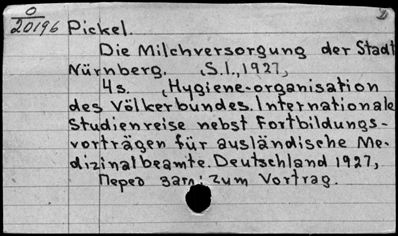 O
20196 Pickel.
Die Milchversorgung der Stadt
Nürnberg. (S.l., 1927)
4s. (Hygiene-organisation
des Völkerbundes. Internationale
Studienreise nebst Fortbildungs-
vorträgen für ausländische Me-
dizinalbeamte. Deutschland 1927)
Перед загл: Zum Vortrag.